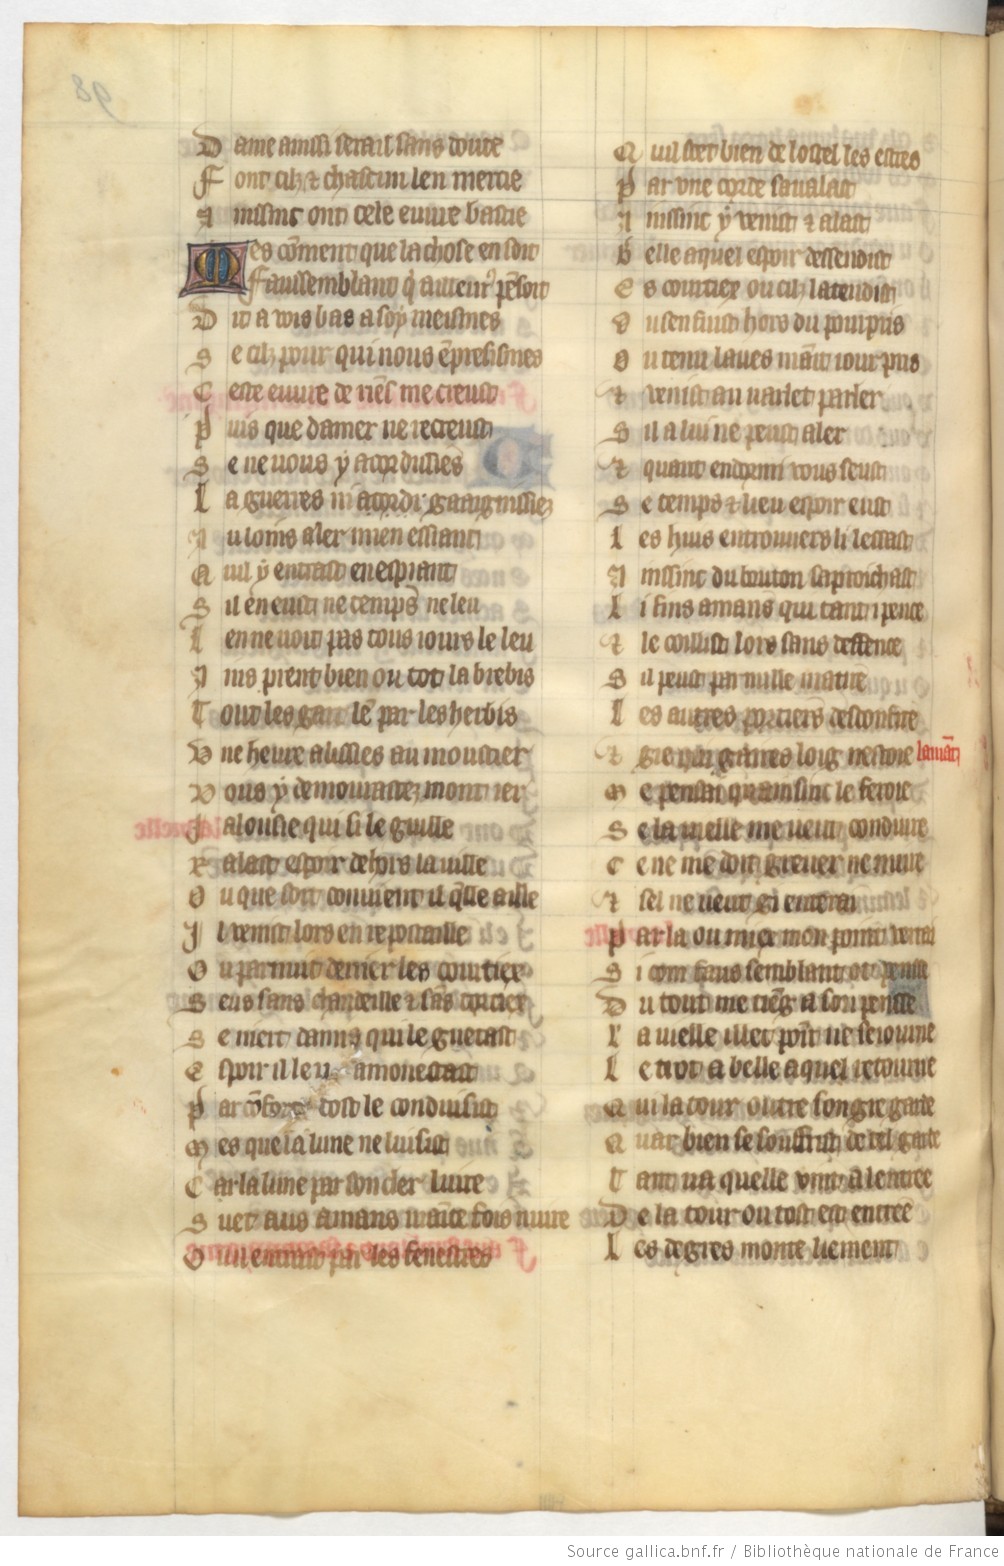 Dame ainssi serait sans doute
Font cilz et chascun len mercie
Ainssinc ont cele euvre bastie
Mes cõment que la chose en soit
Faussemblant q̃ auteur pẽsoit
Dit a vois bas a soy meismes
Se cilz pour qui nous ẽpreismes
Ceste euvre de riẽs me creust
Puis que damer ne recreust
Se ne vous y acordissies
Ja guerres ni
Au loins aler mien essiant
Quil y entrast en espiant
Sil en eust ne temps ne leu
Len ne voit pas tous iours le leu
Ains prent bien ou tot la brebis
Tout les gart lẽ par les herbis
Une heure alissies au moustier
Vous y demourastez mont ier
Jalousie qui si le guille
Ralast espoir dehors la ville
Ou que soit convient il q̃lle aille
Il venist lors en repostaille
Ou par nuit derrier les courtiex
Seus sans chandeille et sãs tortiex
Se niert danns qui le guetast
Espoir il leu amonestast
Par cõfort tost le conduisist
Mes que la lune ne luisist
Car la lune par son cler luire
Suet aus amans mainte fois nuire
Ou il entrast par les fenestres
Quil set bien de lostel les estres
Par une corde savalast
Ainssinc y venist et alast
Belle aquel espoir dessendist
Es courtiex ou cilz latendist
Ou senfuist hors du pourpris
Ou tenu laves maĩt iour pris
Et venist au varlet parler
Sil a lui ne peust aler
Et quant endormi vous seust
Se temps et lieu espoir eust
Les huis entrouvers li lessast
Ainssinc du bouton saproichast
Li fins amans qui tant i pence
Et le coillist lors sans deffence
Sil peust par mille matire
Les autres portiers desconfire
Et gie qui gaires loig nestoie
lamãt
Me pensai quainsinc le feroie
Se la vielle me veut conduire
Ce ne me doit grever ne nuire
Et sel ne veut gi enterai
Par la ou miex mon point verrai
Si com faus semblant ot pense
Du tout me tieg a son pense
La vielle illec poĩt ne seiourne
Le trot a belle aquel retourne
Qui la tour outre son gre garde
Quar bien se souffrist de tel garde
Tant va quelle vint a lentree
De la tour ou tost est entree
Les degres monte liement
Source gallica.bnf.fr / Bibliothèque nationale de France